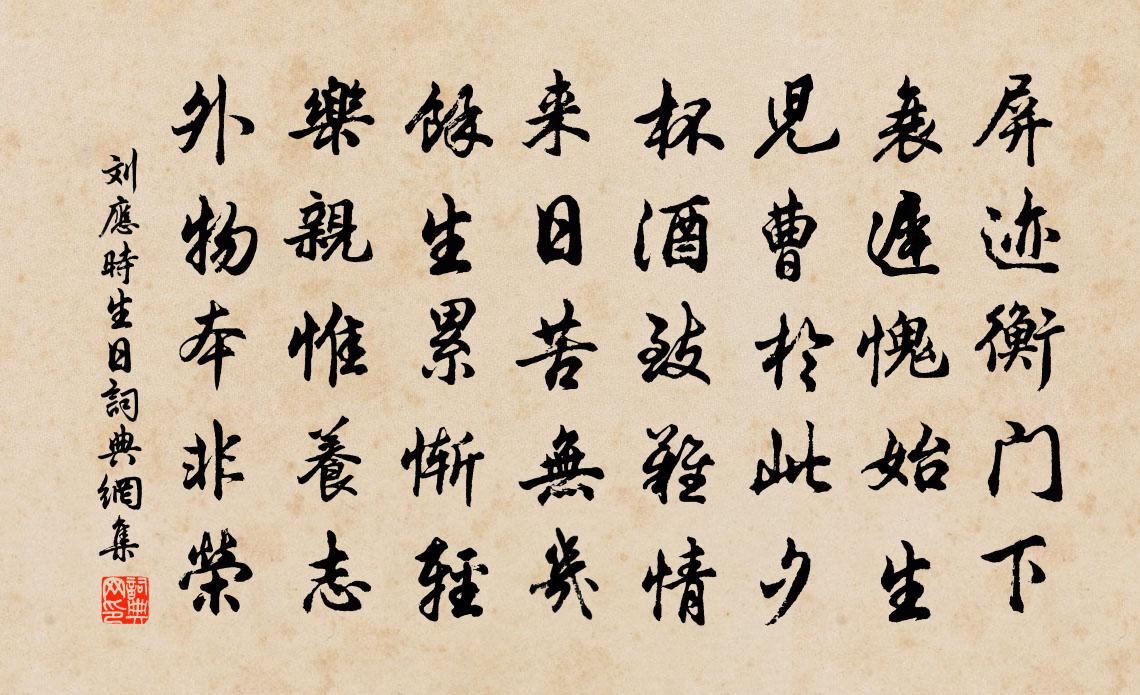 屏迹衡门下
衰遲愧始生
児曹於此夕
杯酒致難情
来日苦無幾
餘生累慚輕
樂親惟養志
外物本非榮
刘應時生日詞典網集
詞典网印